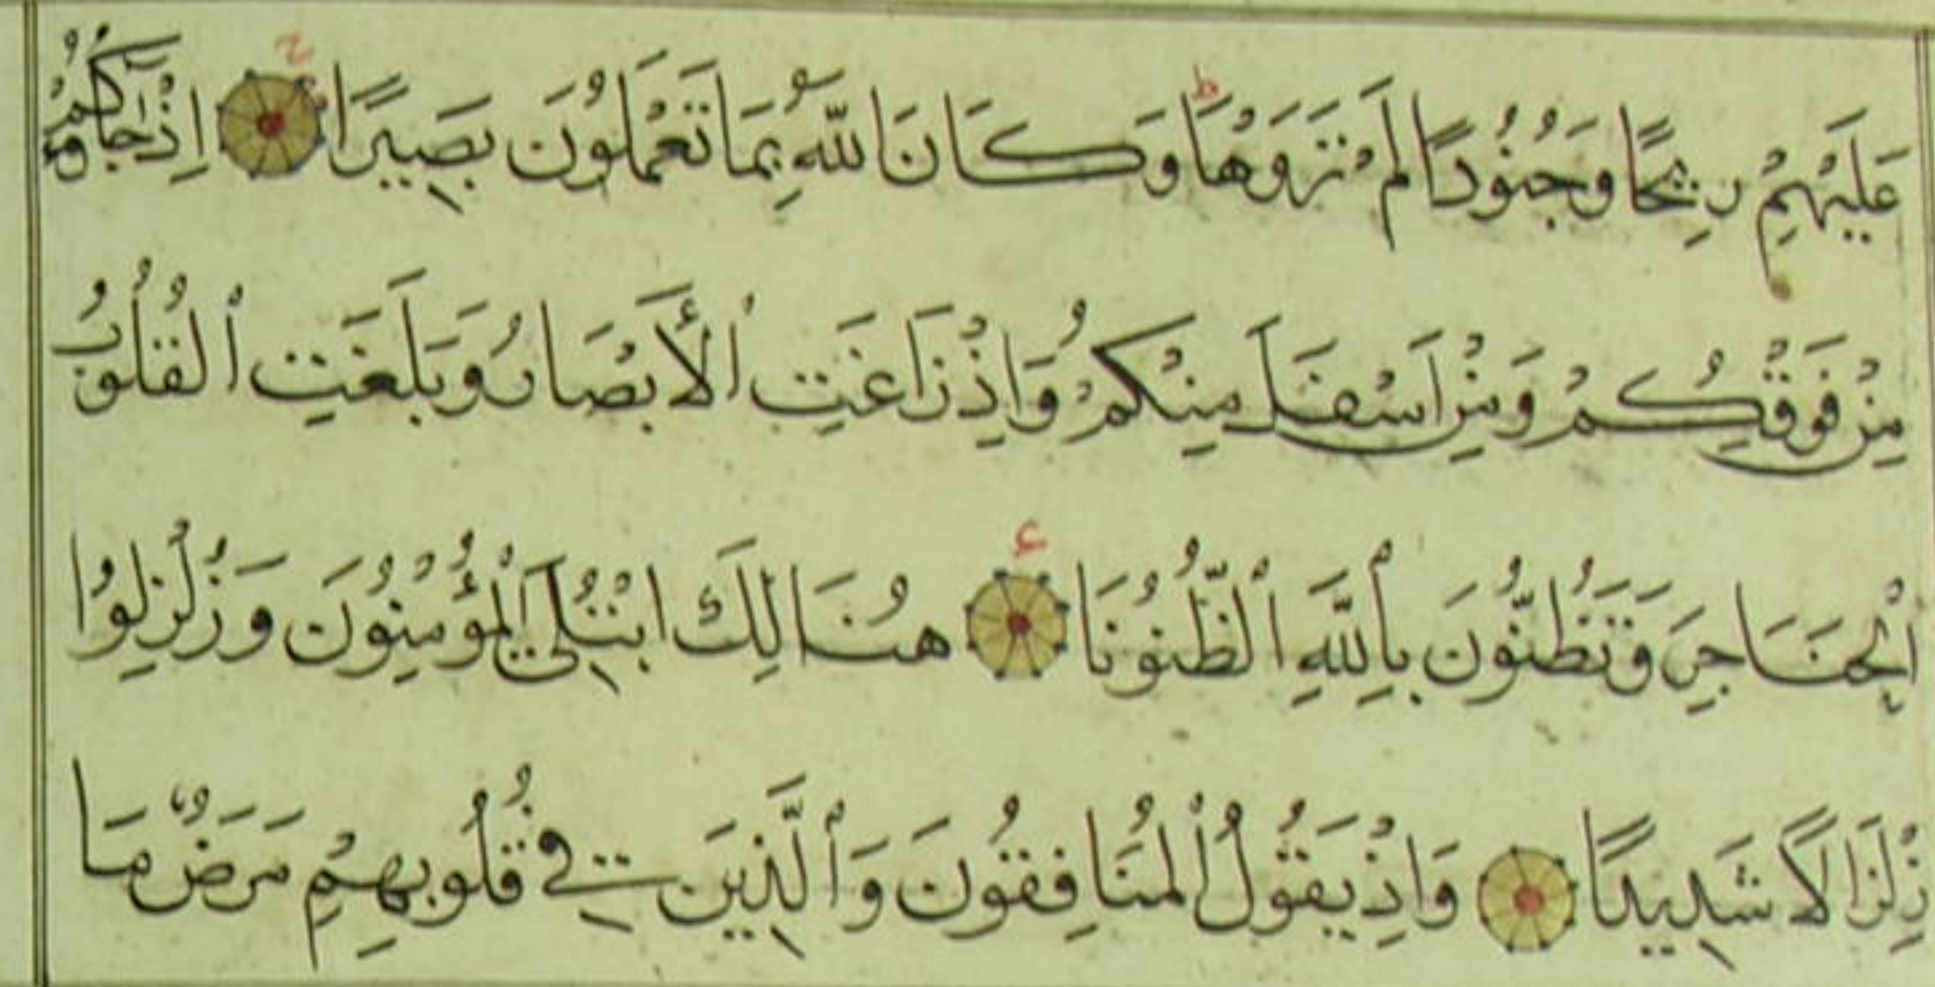 عَلَيْهِمْ رِيحًا وَجُنُودًا لَمْ تَرَوْهَا ۭط وَكَانَ اللّٰهُ بِمَا تَعْمَلُونَ بَصِيرًا ۝ اِذْ جَاؤُكُمْ
مِنْ فَوْقِكُمْ وَمِنْ اَسْفَلَ مِنْكُمْ وَاِذْ زَاغَتِ الْأَبْصَارُ وَبَلَغَتِ الْقُلُوبُ
الْحَنَاجِرَ وَتَظُنُّونَ بِاللّٰهِ الظُّنُونَا ۝ هُنَالِكَ ابْتُلِيَ الْمُؤْمِنُونَ وَزُلْزِلُوا
زِلْزَالًا شَدِيدًا ۝ وَاِذْ يَقُولُ الْمُنَافِقُونَ وَالَّذِينَ فِي قُلُوبِهِمْ مَرَضٌ مَا